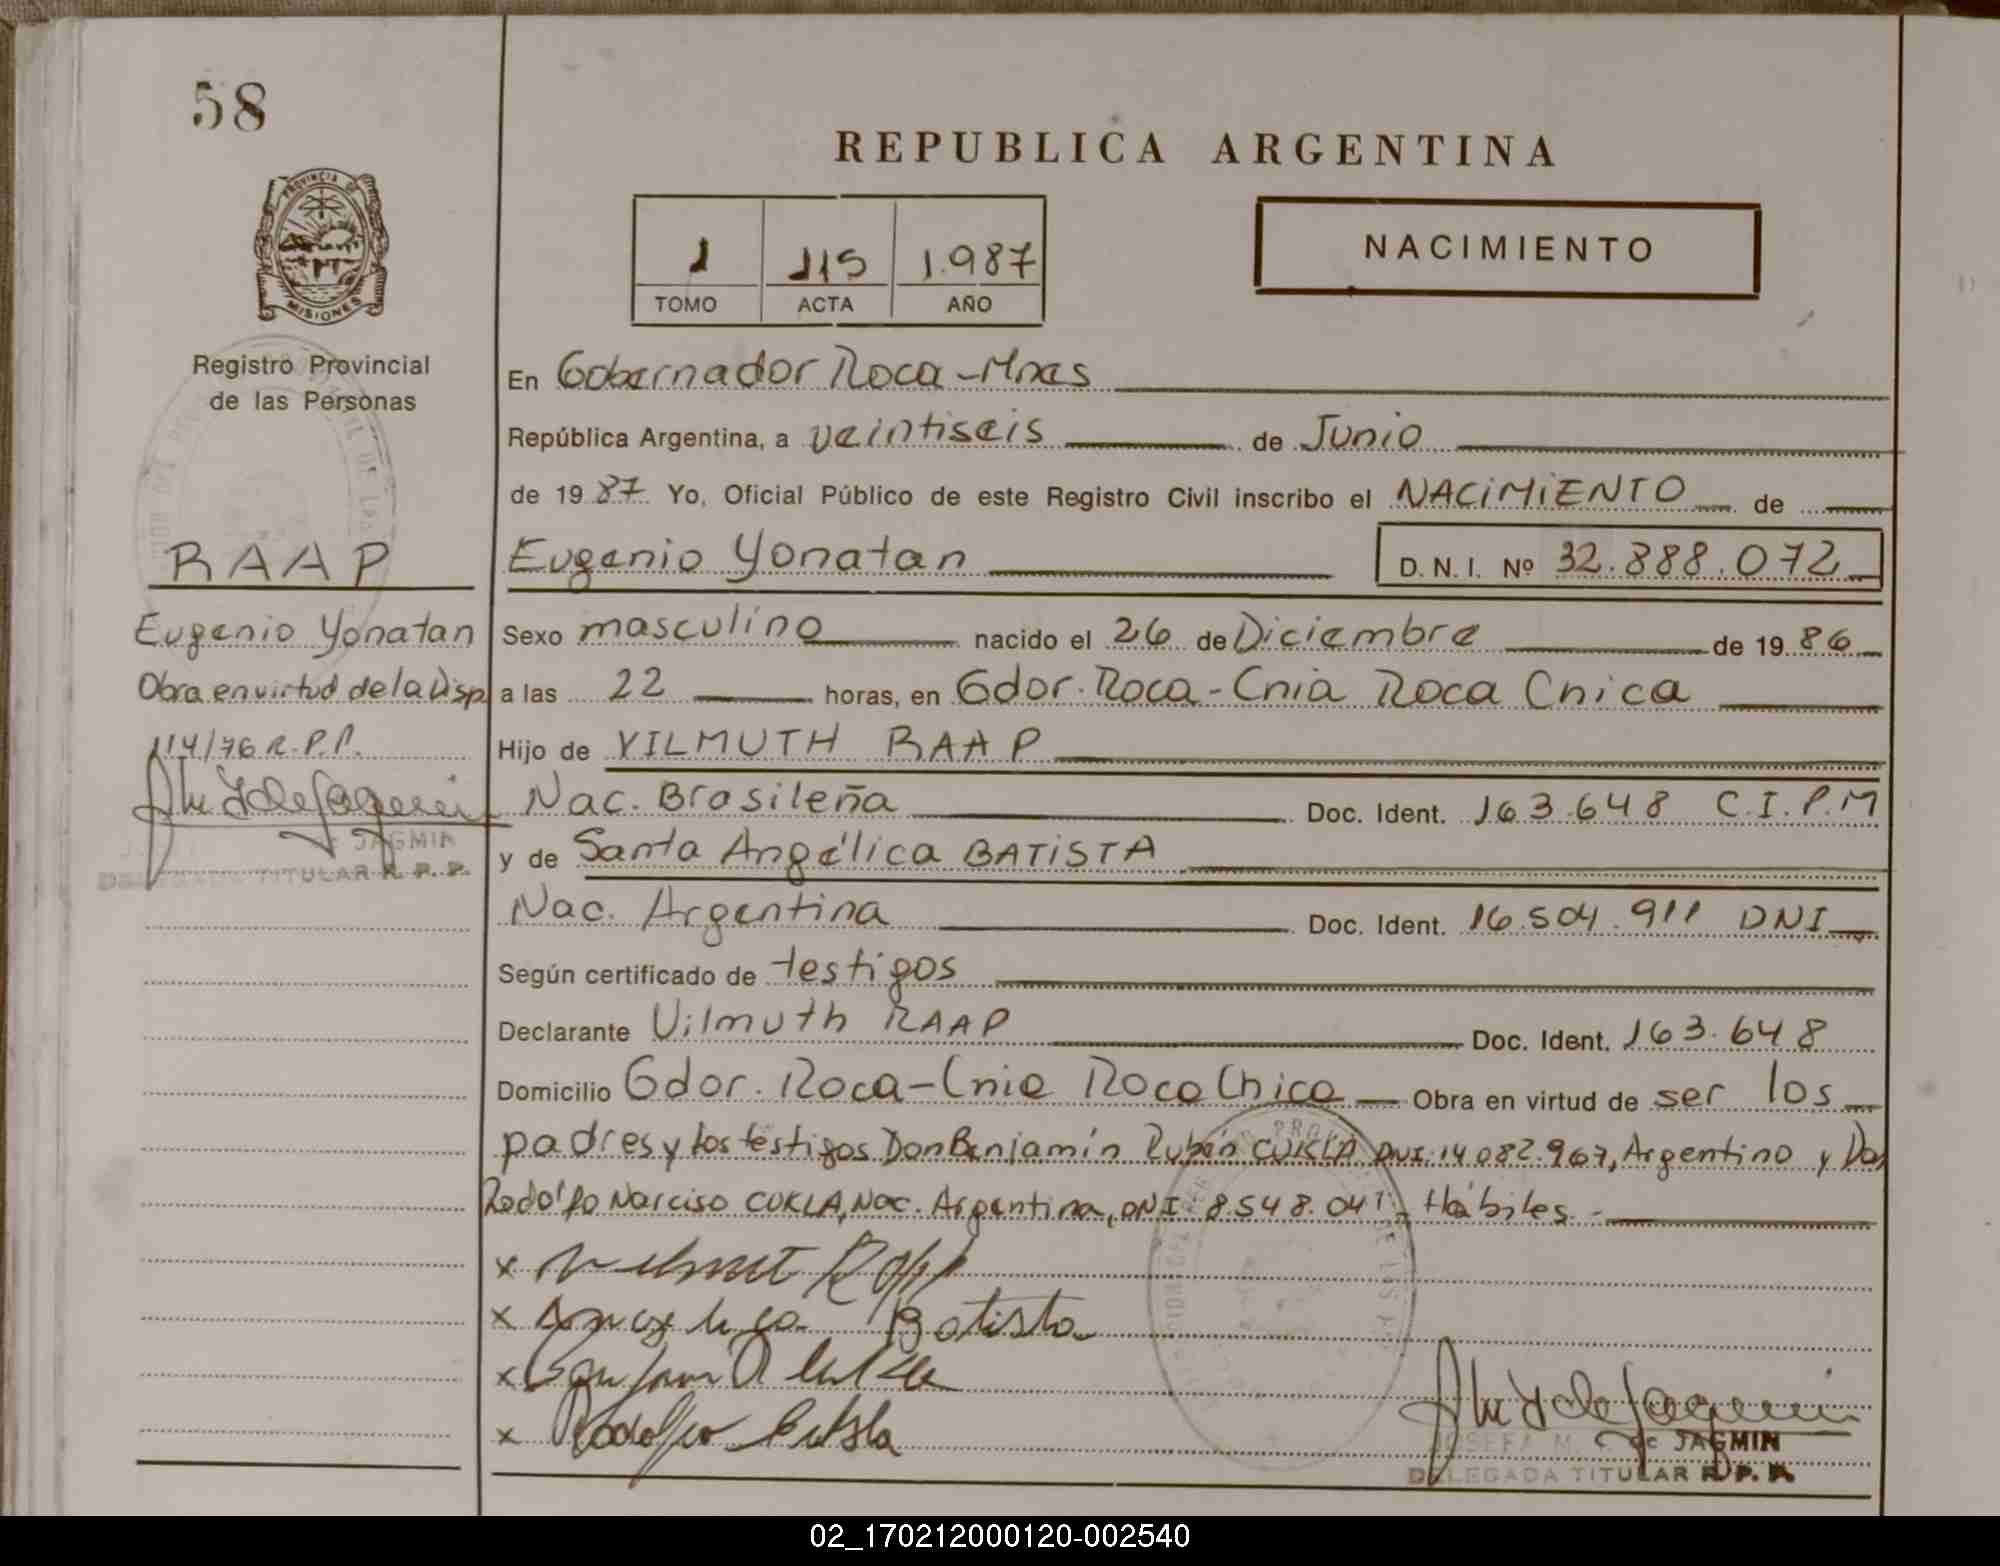 58
REPUBLICA ARGENTINA
PROVINCIA DE
MISIONES
Registro Provincial
de las Personas
1 115 1.987
TOMO ACTA AÑO
NACIMIENTO
En Gobernador Roca-Mnes
República Argentina, a veintiseis de Junio
de 1987 Yo, Oficial Público de este Registro Civil inscribo el NACIMIENTO de
RAAP
Eugenio Yonatan D.N.I. Nº 32.888.072
Eugenio Yonatan
Obra en virtud de la Disp
114/76 R.P.P.
JAGMIN
DELEGADA TITULAR R. P. P.
Sexo masculino nacido el 26 de Diciembre de 1986
a las 22 horas, en Gdor. Roca - Cnia Roca Chica
Hijo de VILMUTH RAAP
Nac. Brasileña Doc. Ident. 163.648 C.I.P.M
y de Santa Angélica BATISTA
Nac. Argentina Doc. Ident. 16.504.911 DNI
Según certificado de testigos
Declarante Vilmuth RAAP Doc. Ident. 163.648
Domicilio Gdor. Roca - Cnia Roca Chica Obra en virtud de ser los
padres y los testigos Don Benjamín Rubén CUKLA DNI 14.082.967, Argentino y Don
Rodolfo Narciso CUKLA, Nac. Argentina, DNI 8.548.041 - Hábiles -
x
x Batista
x
x Rodolfo Cukla
JOSEFA M. de JAGMIN
DELEGADA TITULAR R. P. P.
02_170212000120-002540